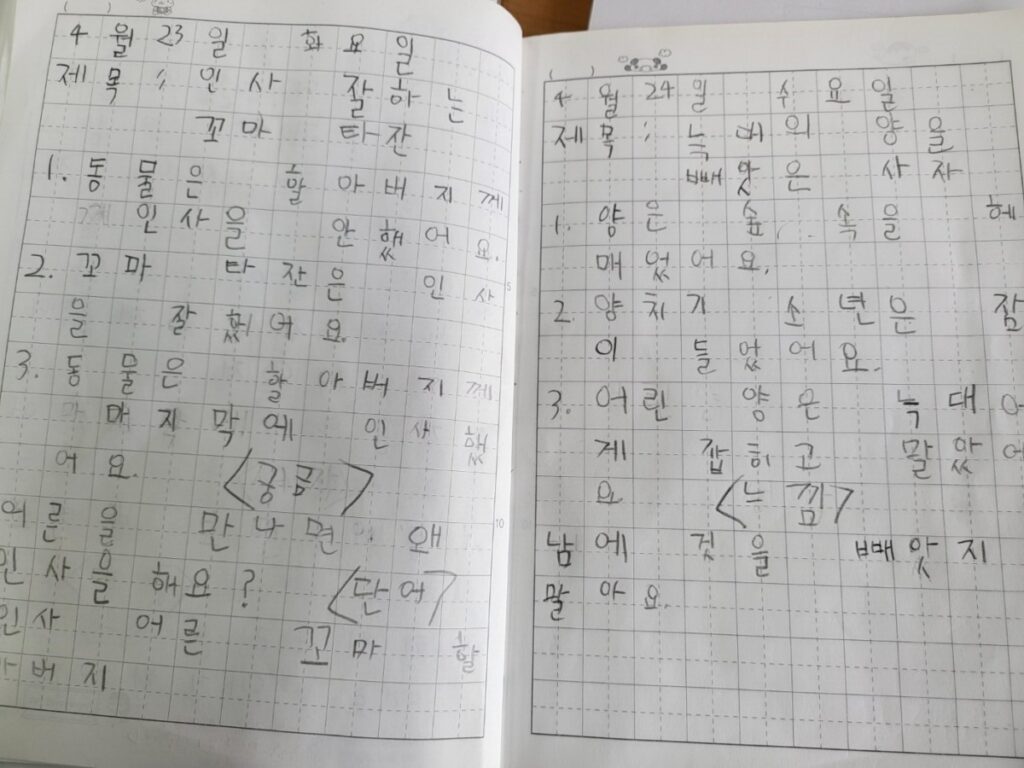 4월 23일 화요일
제목 : 인사 잘하는
꼬마 타잔
1. 동물은 할아버지께
인사을 안했어요.
2. 꼬마 타잔은 인사
을 잘 했어요.
3. 동물은 할아버지께
마지막에 인사했
어요. <궁금>
어른을 만나면 왜
인사을 해요? <단어>
인사 어른 꼬마 할
아버지
4월 24일 수요일
제목 : 늑대의 양을
빼앗은 사자
1. 양은 숲 속을 헤
매었어요.
2 양치기 소년은 잠
이 들었어요.
3. 어린 양은 늑대에
게 잡히고 말았어
요 <느낌>
남에 것을 빼앗지
말아요.